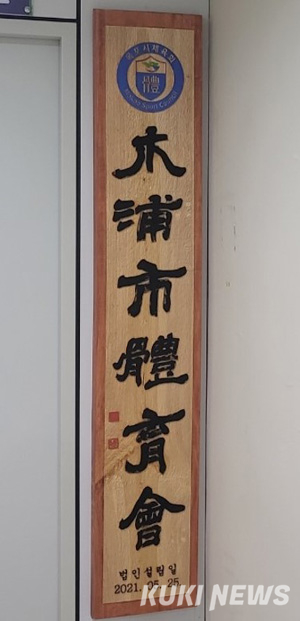 목포시체육회
體
Mokpo Sport Council
木浦市體育會
법인설립일
2021. 05. 25.
KUKI NEWS